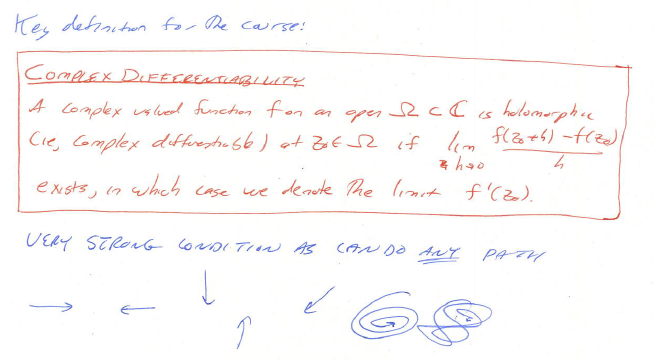 Key definition for the course:
COMPLEX DIFFERENTIABILITY
A complex valued function f on an open Ω ⊂ ℂ is holomorphic
(ie, complex differentiable) at z₀ ∈ Ω if lim h→0 (f(z₀+h) - f(z₀))/h
exists, in which case we denote the limit f'(z₀).
VERY STRONG CONDITION AS CAN DO ANY PATH